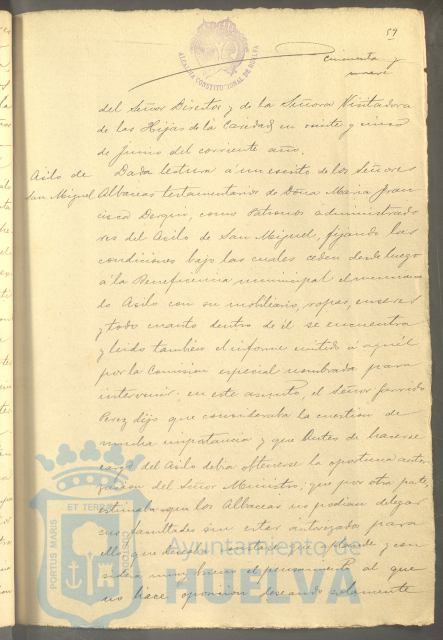 59
cincuenta y
nueve
ALCALDIA CONSTITUCIONAL DE HUELVA
del Señor Director y de la Señora Visitadora
de las Hijas de la Caridad en veinte y cinco
de Junio del corriente año.
Asilo de
San Miguel
Dada lectura a un escrito de los Señores
Albaceas testamentarios de Doña Maria Fran
cisca Derqui, como Patronos administrado
res del Asilo de San Miguel, fijando las
condiciones bajo las cuales ceden desde luego
á la Beneficencia municipal el menciona
do Asilo con su mobiliario, ropas, enseres
y todo cuanto dentro de él se encuentra
y leido tambien el informe emitido á aquél
por la Comision especial nombrada para
intervenir en este asunto, el Señor Garrido
Perez dijo que consideraba la cuestion de
mucha importancia y que antes de hacerse
cargo del Asilo debia obtenerse la oportuna autori
zacion del Señor Ministro; que por otra parte
estimaba que los Albaceas no podian delegar
sus facultades sin estar autorizados para
ello, que desde luego aplaude y con
sidera muy bueno el pensamiento al que
no hace oposicion deseando solamente
PORTUS MARIS ET TERRAE CUSTODIA
Ayuntamiento de
HUELVA